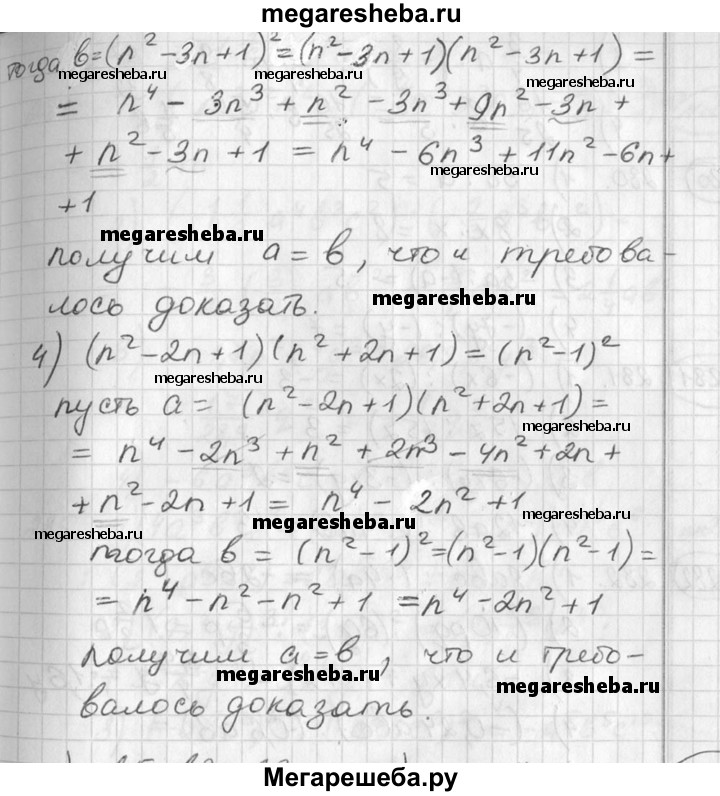 megaresheba.ru
тогда b=(n²-3n+1)²=(n²-3n+1)(n²-3n+1)=
megaresheba.ru megaresheba.ru megaresheba.ru
= n⁴ - 3n³ + n² - 3n³ + 9n² - 3n +
+ n² - 3n + 1 = n⁴ - 6n³ + 11n² - 6n +
megaresheba.ru
+1
megaresheba.ru
получим a = b, что и требова-
лось доказать.
megaresheba.ru
4) (n²-2n+1)(n²+2n+1)=(n²-1)²
megaresheba.ru
пусть a = (n²-2n+1)(n²+2n+1)=
= n⁴ - 2n³ + n² + 2n³ - 4n² + 2n +
+ n² - 2n + 1 = n⁴ - 2n² + 1
megaresheba.ru megaresheba.ru megaresheba.ru
тогда b = (n²-1)²=(n²-1)(n²-1)=
= n⁴ - n² - n² + 1 = n⁴ - 2n² + 1
получим a = b, что и требо-
megaresheba.ru megaresheba.ru
валось доказать.
Мегарешеба.ру